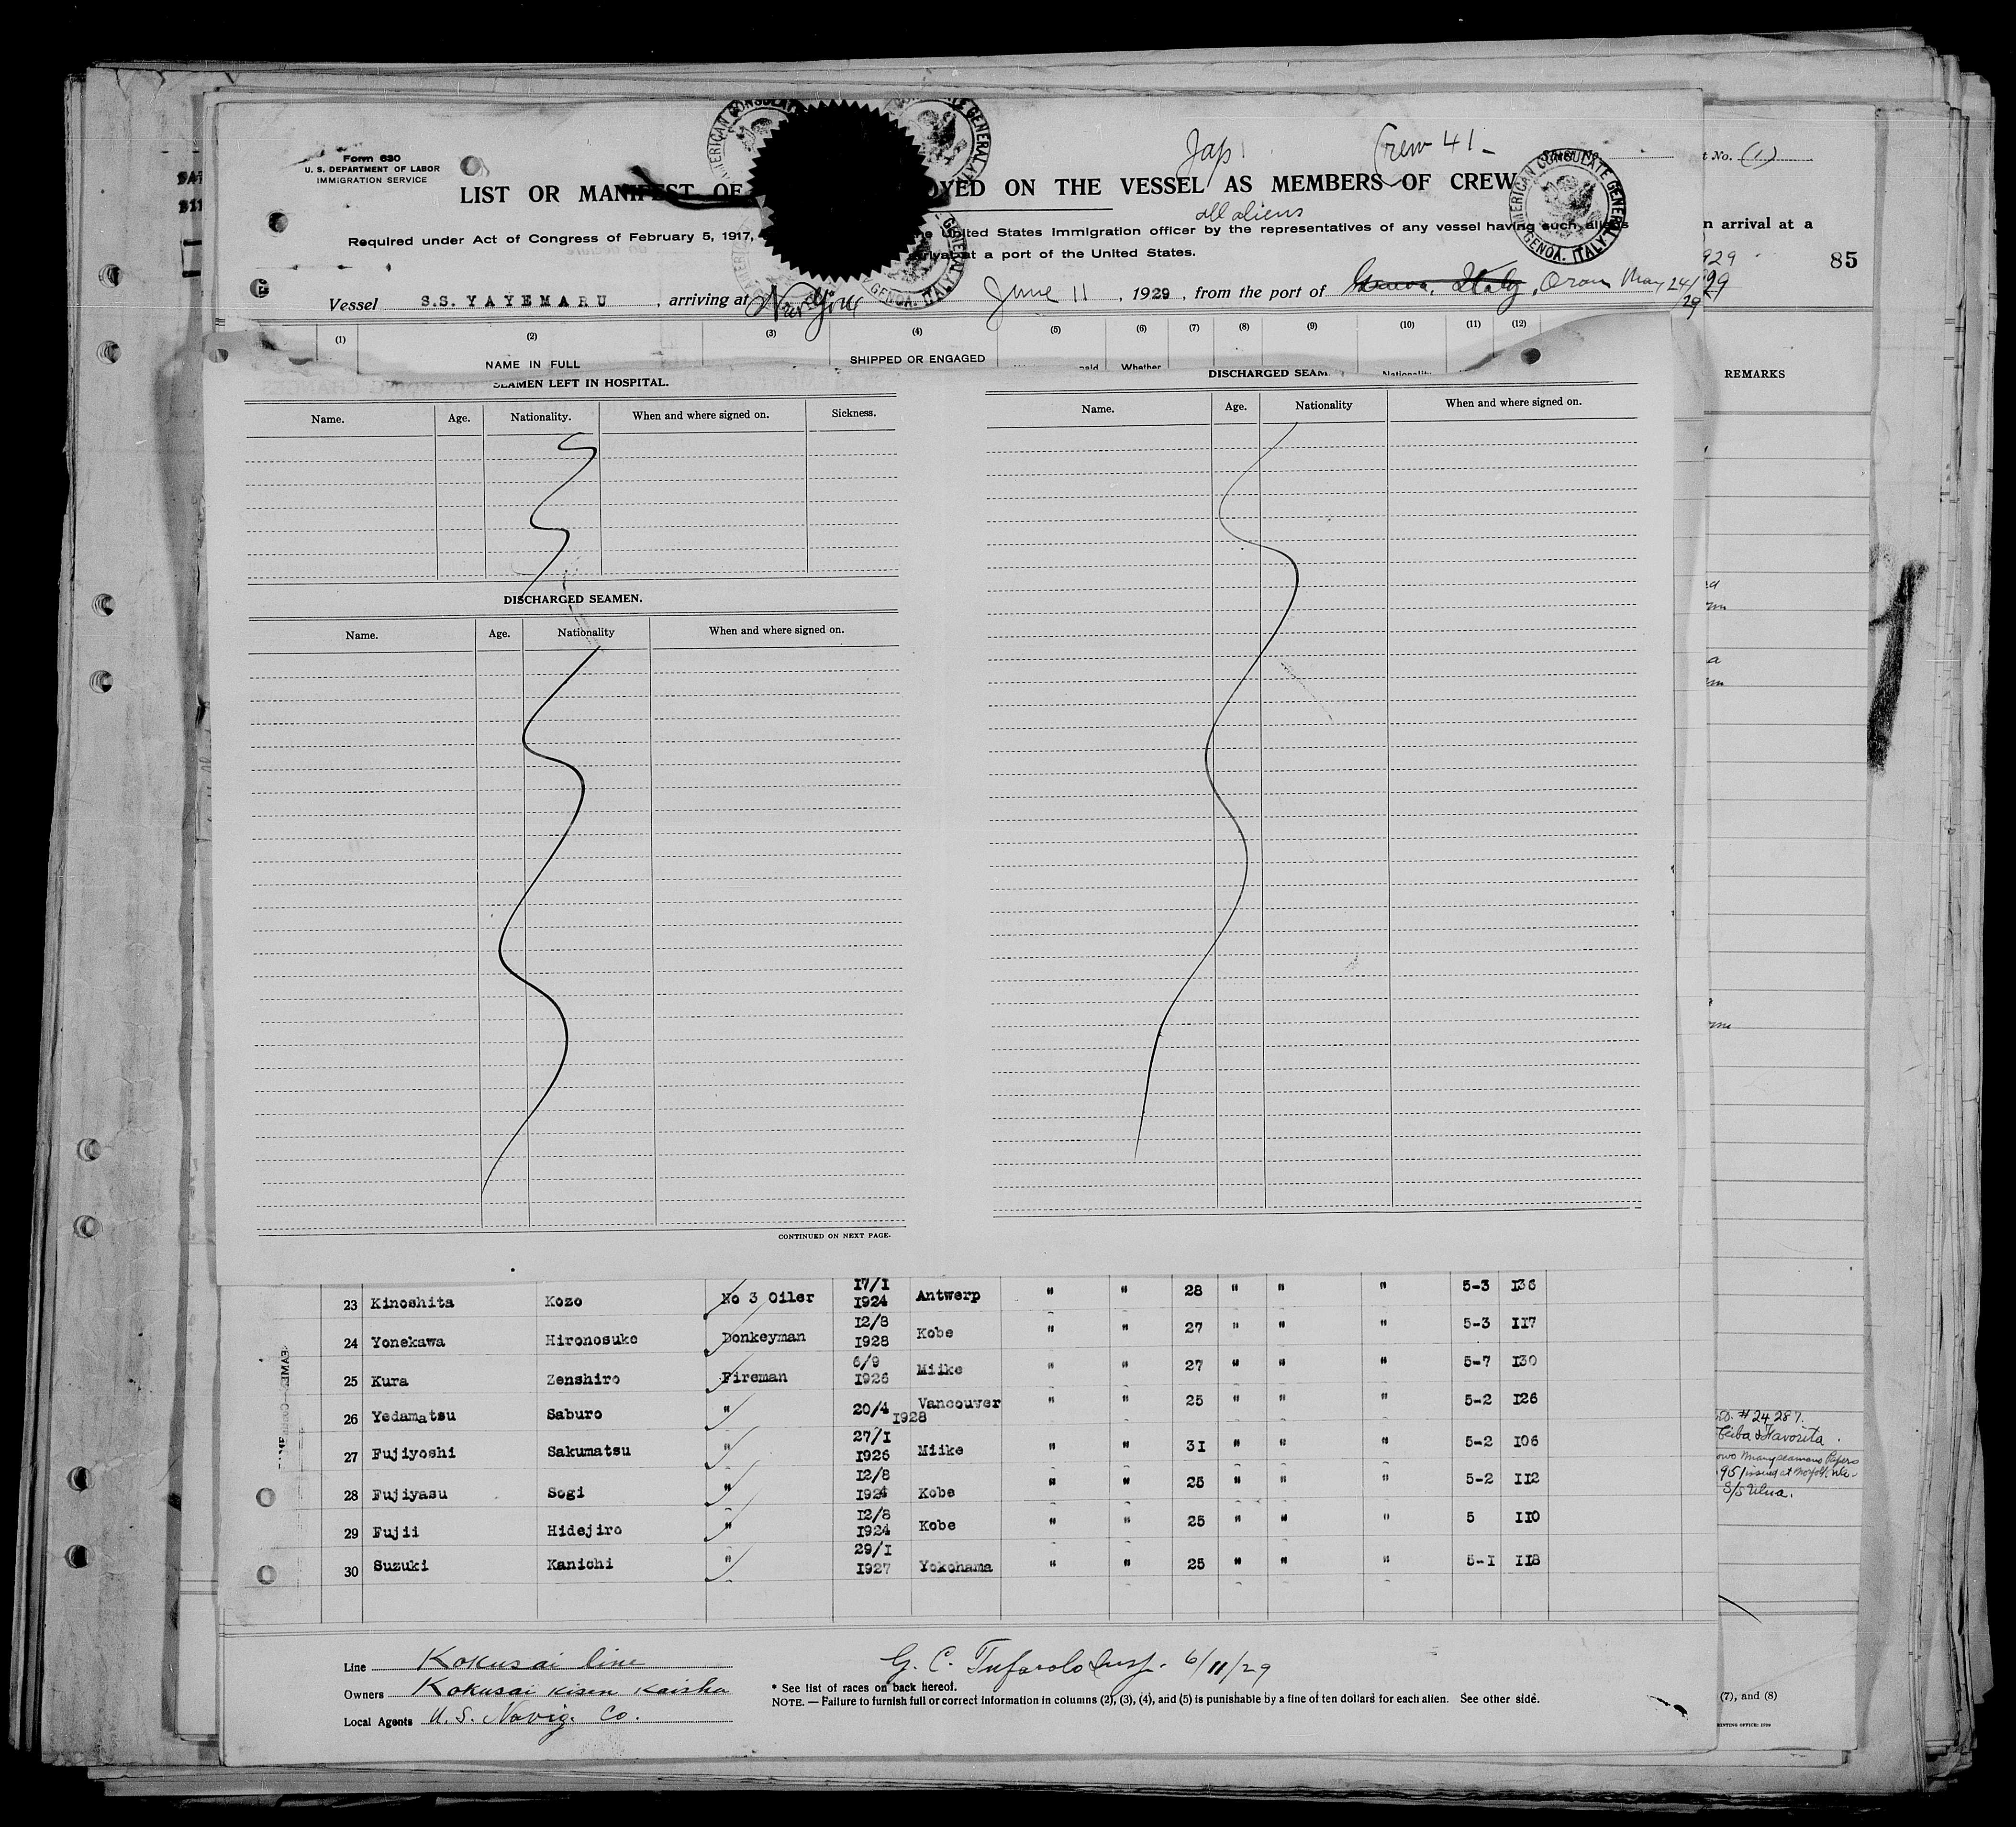 Form 630
U. S. DEPARTMENT OF LABOR
IMMIGRATION SERVICE
Jap
Crew 41-
t No. (1)
LIST OR MANIFEST OF OYED ON THE VESSEL AS MEMBERS OF CREW
all aliens
Required under Act of Congress of February 5, 1917, United States Immigration officer by the representatives of any vessel having such aliens
n arrival at a
arrival at a port of the United States.
929
85
Vessel S.S. YAYEMARU , arriving at New York June 11 , 1929 , from the port of Genova, Italy, Oran May 24/29
29
AMERICAN CONSULATE GENERAL
GENOA. ITALY
(1) (2) (3) (4) (5) (6) (7) (8) (9) (10) (11) (12)
NAME IN FULL SHIPPED OR ENGAGED paid Whether Nationality
REMARKS
SEAMEN LEFT IN HOSPITAL.
Name. Age. Nationality. When and where signed on. Sickness.
DISCHARGED SEAMEN.
Name. Age. Nationality When and where signed on.
CONTINUED ON NEXT PAGE.
DISCHARGED SEAM
Name. Age. Nationality When and where signed on.
23 Kinoshita Kozo No 3 Oiler 17/1 1924 Antwerp " " 28 " " " 5-3 136
24 Yonekawa Hironosuke Donkeyman 12/8 1928 Kobe " " 27 " " " 5-3 117
25 Kura Zenshiro Fireman 6/9 1926 Miike " " 27 " " " 5-7 130
26 Yedamatsu Saburo " 20/4 1928 Vancouver " " 25 " " " 5-2 126
27 Fujiyoshi Sakumatsu " 27/1 1926 Miike " " 31 " " " 5-2 106
28 Fujiyasu Sogi " 12/8 1924 Kobe " " 25 " " " 5-2 112
29 Fujii Hidejiro " 12/8 1924 Kobe " " 25 " " " 5 110
30 Suzuki Kanichi " 29/1 1927 Yokohama " " 25 " " " 5-1 118
# 24287.
Ceiba & Favorita.
951 issued at Norfolk Va.
S/S Ulua.
Line Kokusai line
Owners Kokusai Kisen Kaisha
Local Agents U. S. Navig. Co.
G. C. Tufarolo Insp. 6/11/29
* See list of races on back hereof.
NOTE. — Failure to furnish full or correct information in columns (2), (3), (4), and (5) is punishable by a fine of ten dollars for each alien. See other side.
(7), and (8)